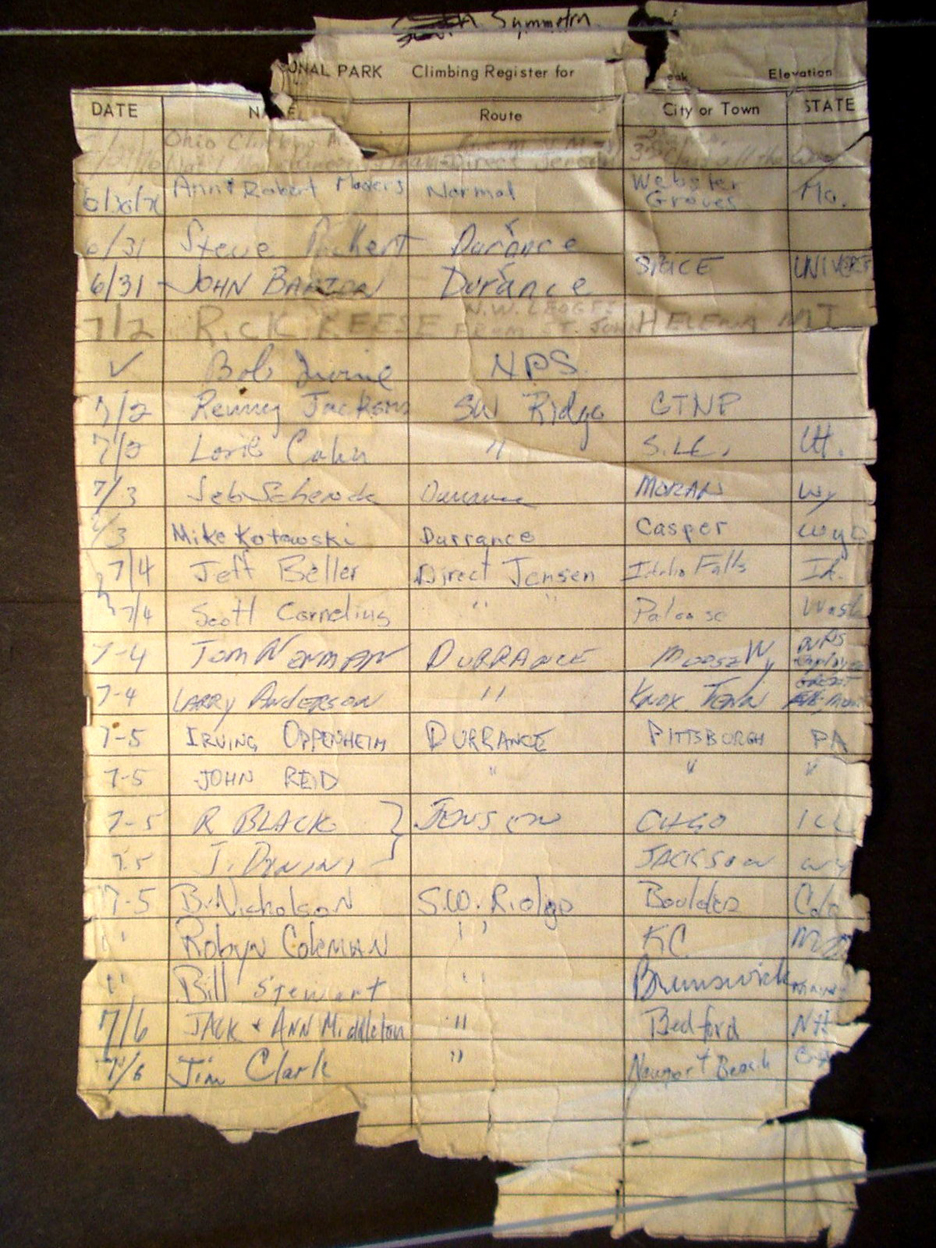 Symmetra
ONAL PARK Climbing Register for eak Elevation
DATE NAME Route City or Town STATE
Ohio Climbing
Direct Jensen 3rd class all the way
Ann & Robert Normal Webster Groves Mo.
6/31 Steve Durance
6/31 JOHN BARTON Durance SPACE UNIVERS
7/2 RICK REESE N.W. LEDGES FROM ST. JOHN HELENA MT
✓ Bob Irvine NPS
7/2 Renny Jackson SW Ridge GTNP
7/2 Lorie Cahn " S.L.C. Ut.
7/3 Jeb Schenck Durrance MORAN Wy
7/3 Mike Kotowski Durrance Casper Wyo
7/4 Jeff Beller Direct Jensen Idaho Falls Id.
7/4 Scott Cornelius " " Palouse Wash
7-4 TOM NEWMAN DURRANCE MOOSE Wy NPS Employee
7-4 LARRY ANDERSON " KNOX. TENN
7-5 IRVING OPPENHEIM DURRANCE PITTSBURGH PA
7-5 JOHN REID " " "
7-5 R BLACK } JENSEN CHGO ILL
7-5 JACKSON WY
7-5 B. Nicholson S.W. Ridge Boulder Colo
" Robyn Coleman " KC. MO
" Bill Stewart " Brunswick Maine
7/6 JACK & ANN Middleton " Bedford NH
7/6 Jim Clark " Newport Beach